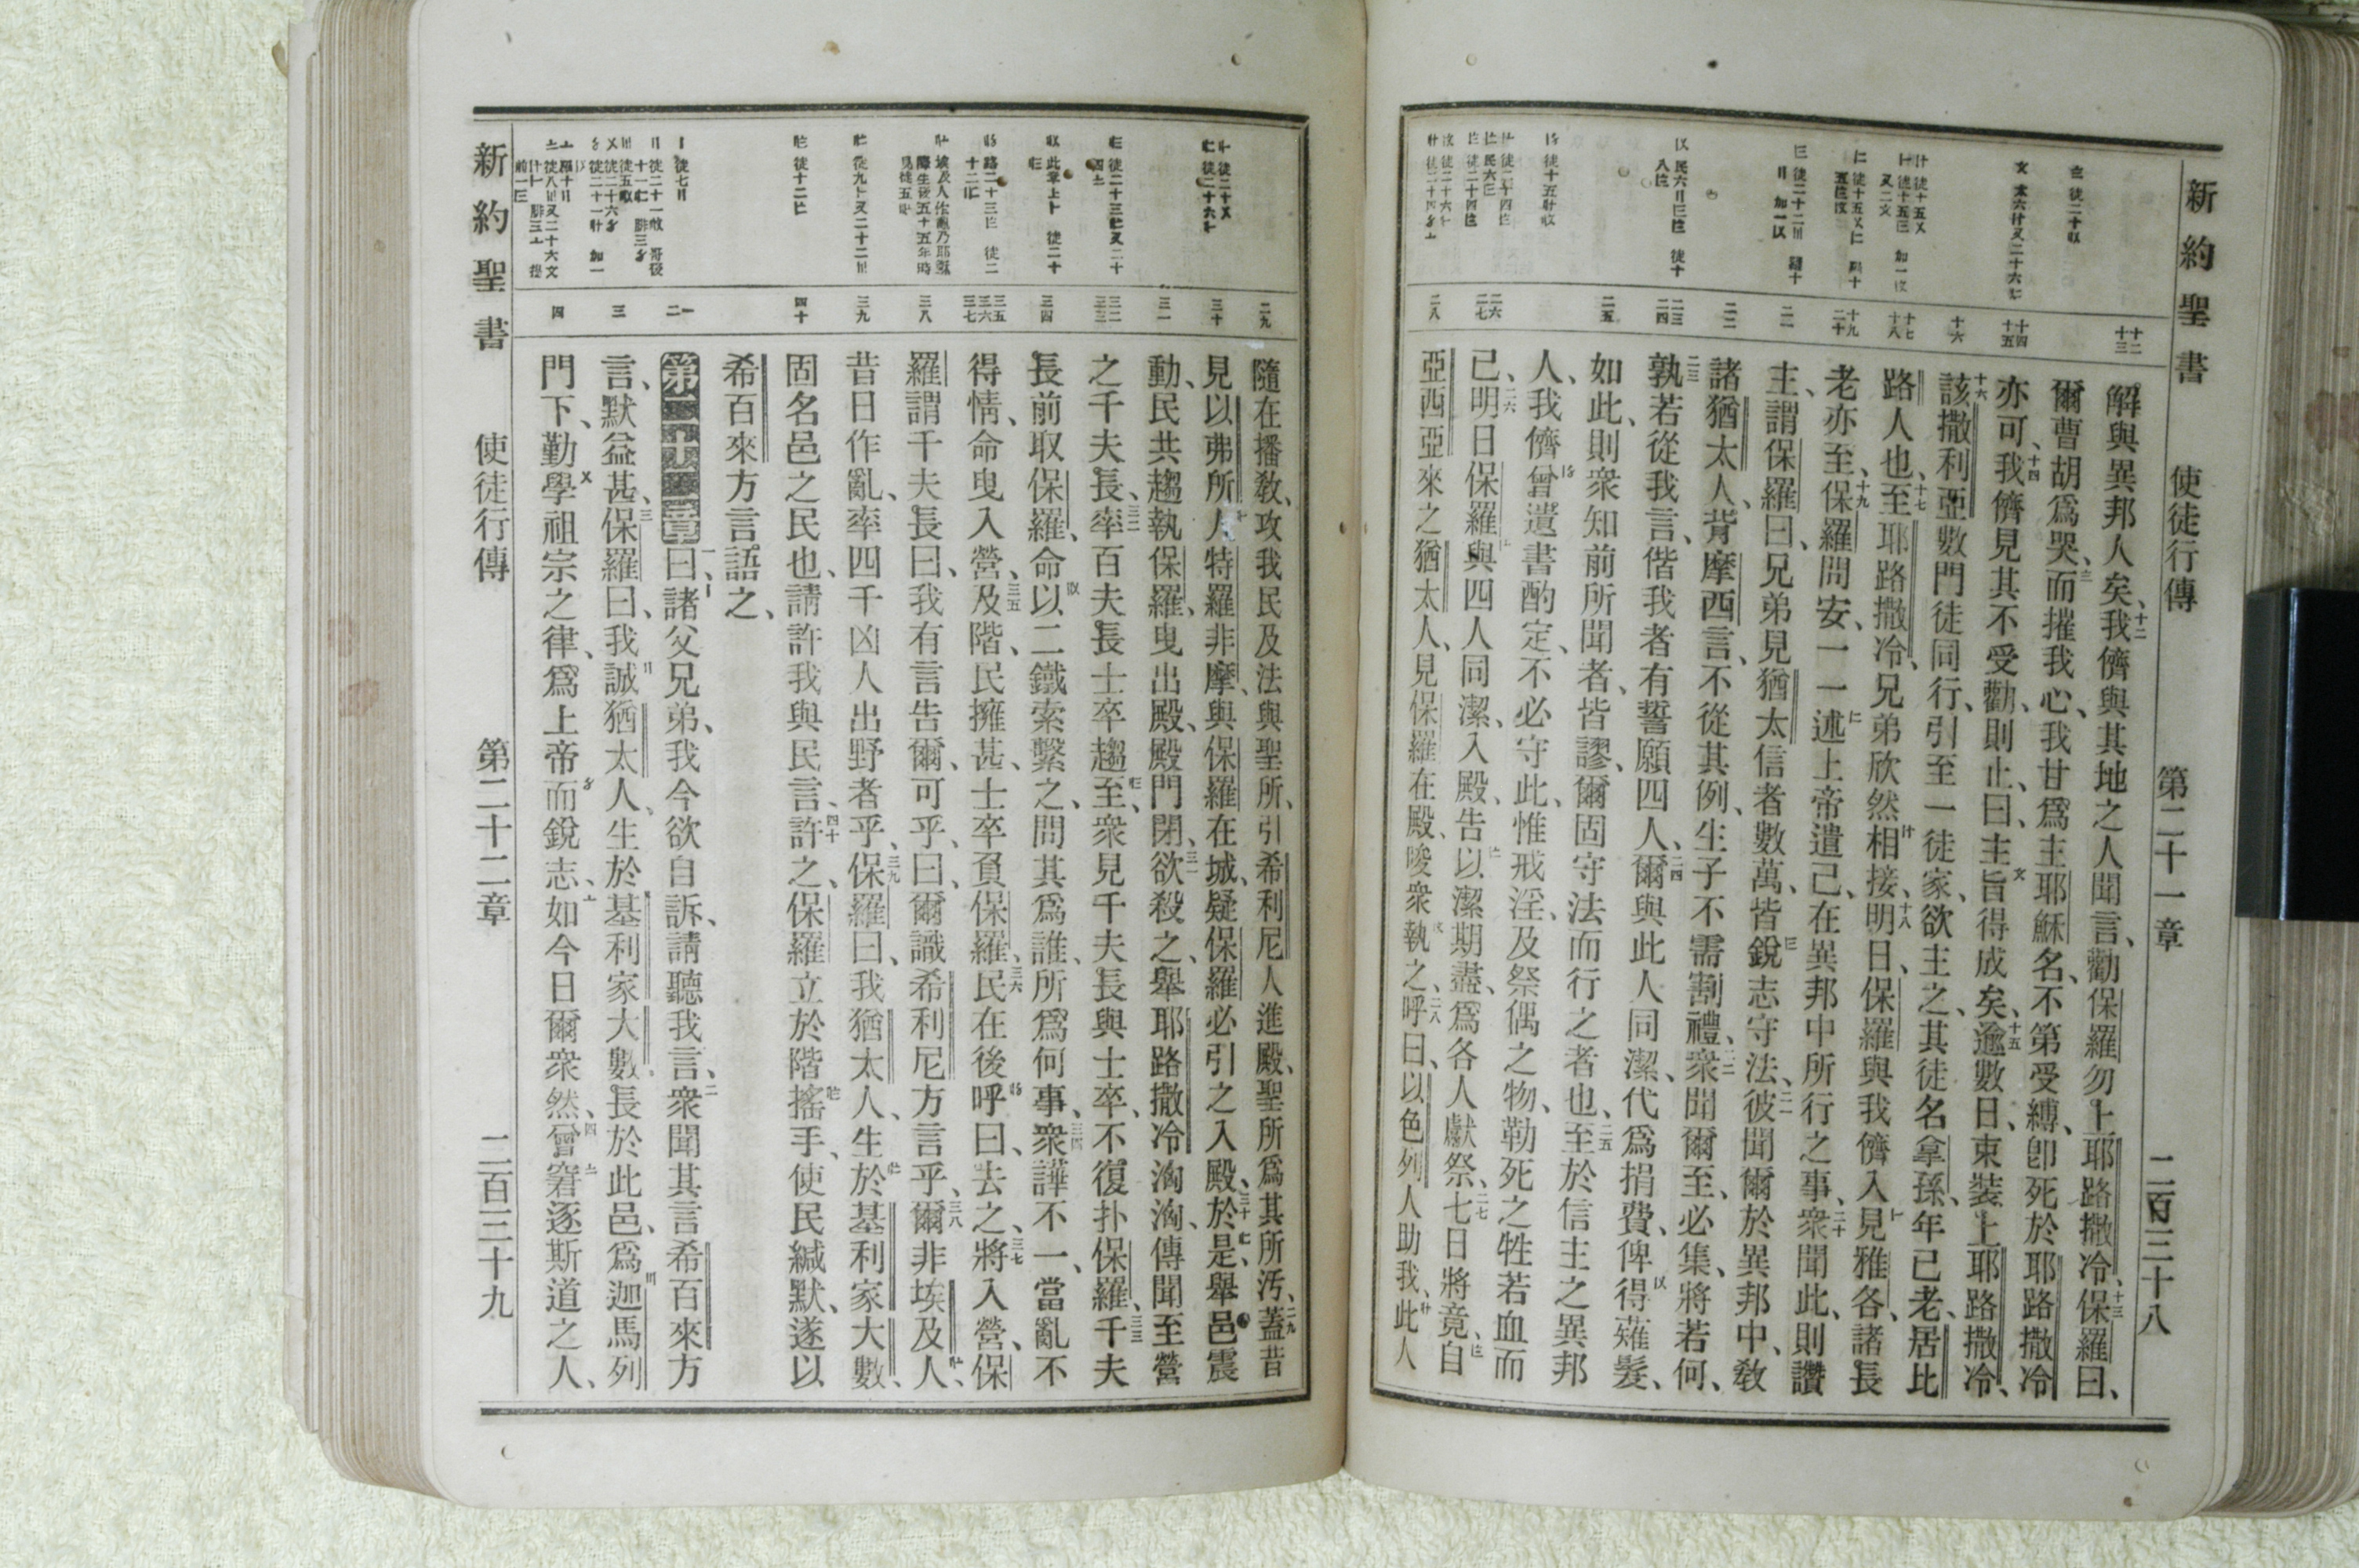 新約聖書 使徒行傳 第二十一章 二百三十八
解與異邦人矣、十二我儕與其地之人聞言、勸保羅勿上耶路撒冷、十三保羅曰、
爾曹胡爲哭、而摧我心、我甘爲主耶穌名、不第受縛、卽死於耶路撒冷
亦可、十四我儕見其不受勸、則止、曰、主旨得成矣、十五逾數日、束裝上耶路撒冷、
十六該撒利亞數門徒同行、引至一徒家、欲主之、其徒名拿孫、年已老、居比
路人也、十七至耶路撒冷、兄弟欣然相接、十八明日、保羅與我儕入見雅各、諸長
老亦至、十九保羅問安、一一述上帝遣己、在異邦中所行之事、二十衆聞此、則讚
主、謂保羅曰、兄弟見猶太信者數萬、皆銳志守法、二一彼聞爾於異邦中、敎
諸猶太人、背摩西言、不從其例、生子不需割禮、二二衆聞爾至、必集、將若何、
二三孰若從我言、偕我者有誓願四人、二四爾與此人同潔、代爲捐費、俾得薙髮、
如此、則衆知前所聞者、皆謬、爾固守法而行之者也、二五至於信主之異邦
人、我儕曾遺書酌定、不必守此、惟戒淫、及祭偶之物、勒死之牲若血而
已、二六明日保羅與四人同潔、入殿、告以潔期盡、爲各人獻祭、二七七日將竟、自
亞西亞來之猶太人、見保羅在殿、唆衆執之、二八呼曰、以色列人助我、此人
二九 三十 三一 三二 三三 三四 三五 三六 三七 三八 三九 四十 一 二 三 四
隨在播敎、攻我民及法與聖所、引希利尼人進殿、聖所爲其所汚、二九蓋昔
見以弗所人特羅非摩、與保羅在城、疑保羅必引之入殿、三十於是、舉邑震
動、民共趨執保羅、曳出殿、殿門閉、三一欲殺之、舉耶路撒冷洶洶、傳聞至營
之千夫長、三二率百夫長士卒趨至、衆見千夫長與士卒、不復扑保羅、三三千夫
長前取保羅、命以二鐵索繫之、問其爲誰、所爲何事、三四衆譁不一、當亂不
得情、命曳入營、三五及階、民擁甚、士卒負保羅、三六民在後呼曰、去之、三七將入營、保
羅謂千夫長曰、我有言告爾、可乎、曰、爾識希利尼方言乎、三八爾非埃及人、
昔日作亂、率四千凶人出野者乎、三九保羅曰、我猶太人、生於基利家大數、
固名邑之民也、請許我與民言、四十許之、保羅立於階搖手、使民緘默、遂以
希百來方言語之、
第二十二章 一曰、諸父兄弟、我今欲自訴、請聽我言、二衆聞其言希百來方
言、默益甚、三保羅曰、我誠猶太人、生於基利家大數、長於此邑、爲迦馬列
門下、勤學祖宗之律、爲上帝而銳志、如今日爾衆然、四曾窘逐斯道之人、
新約聖書 使徒行傳 第二十二章 二百三十九